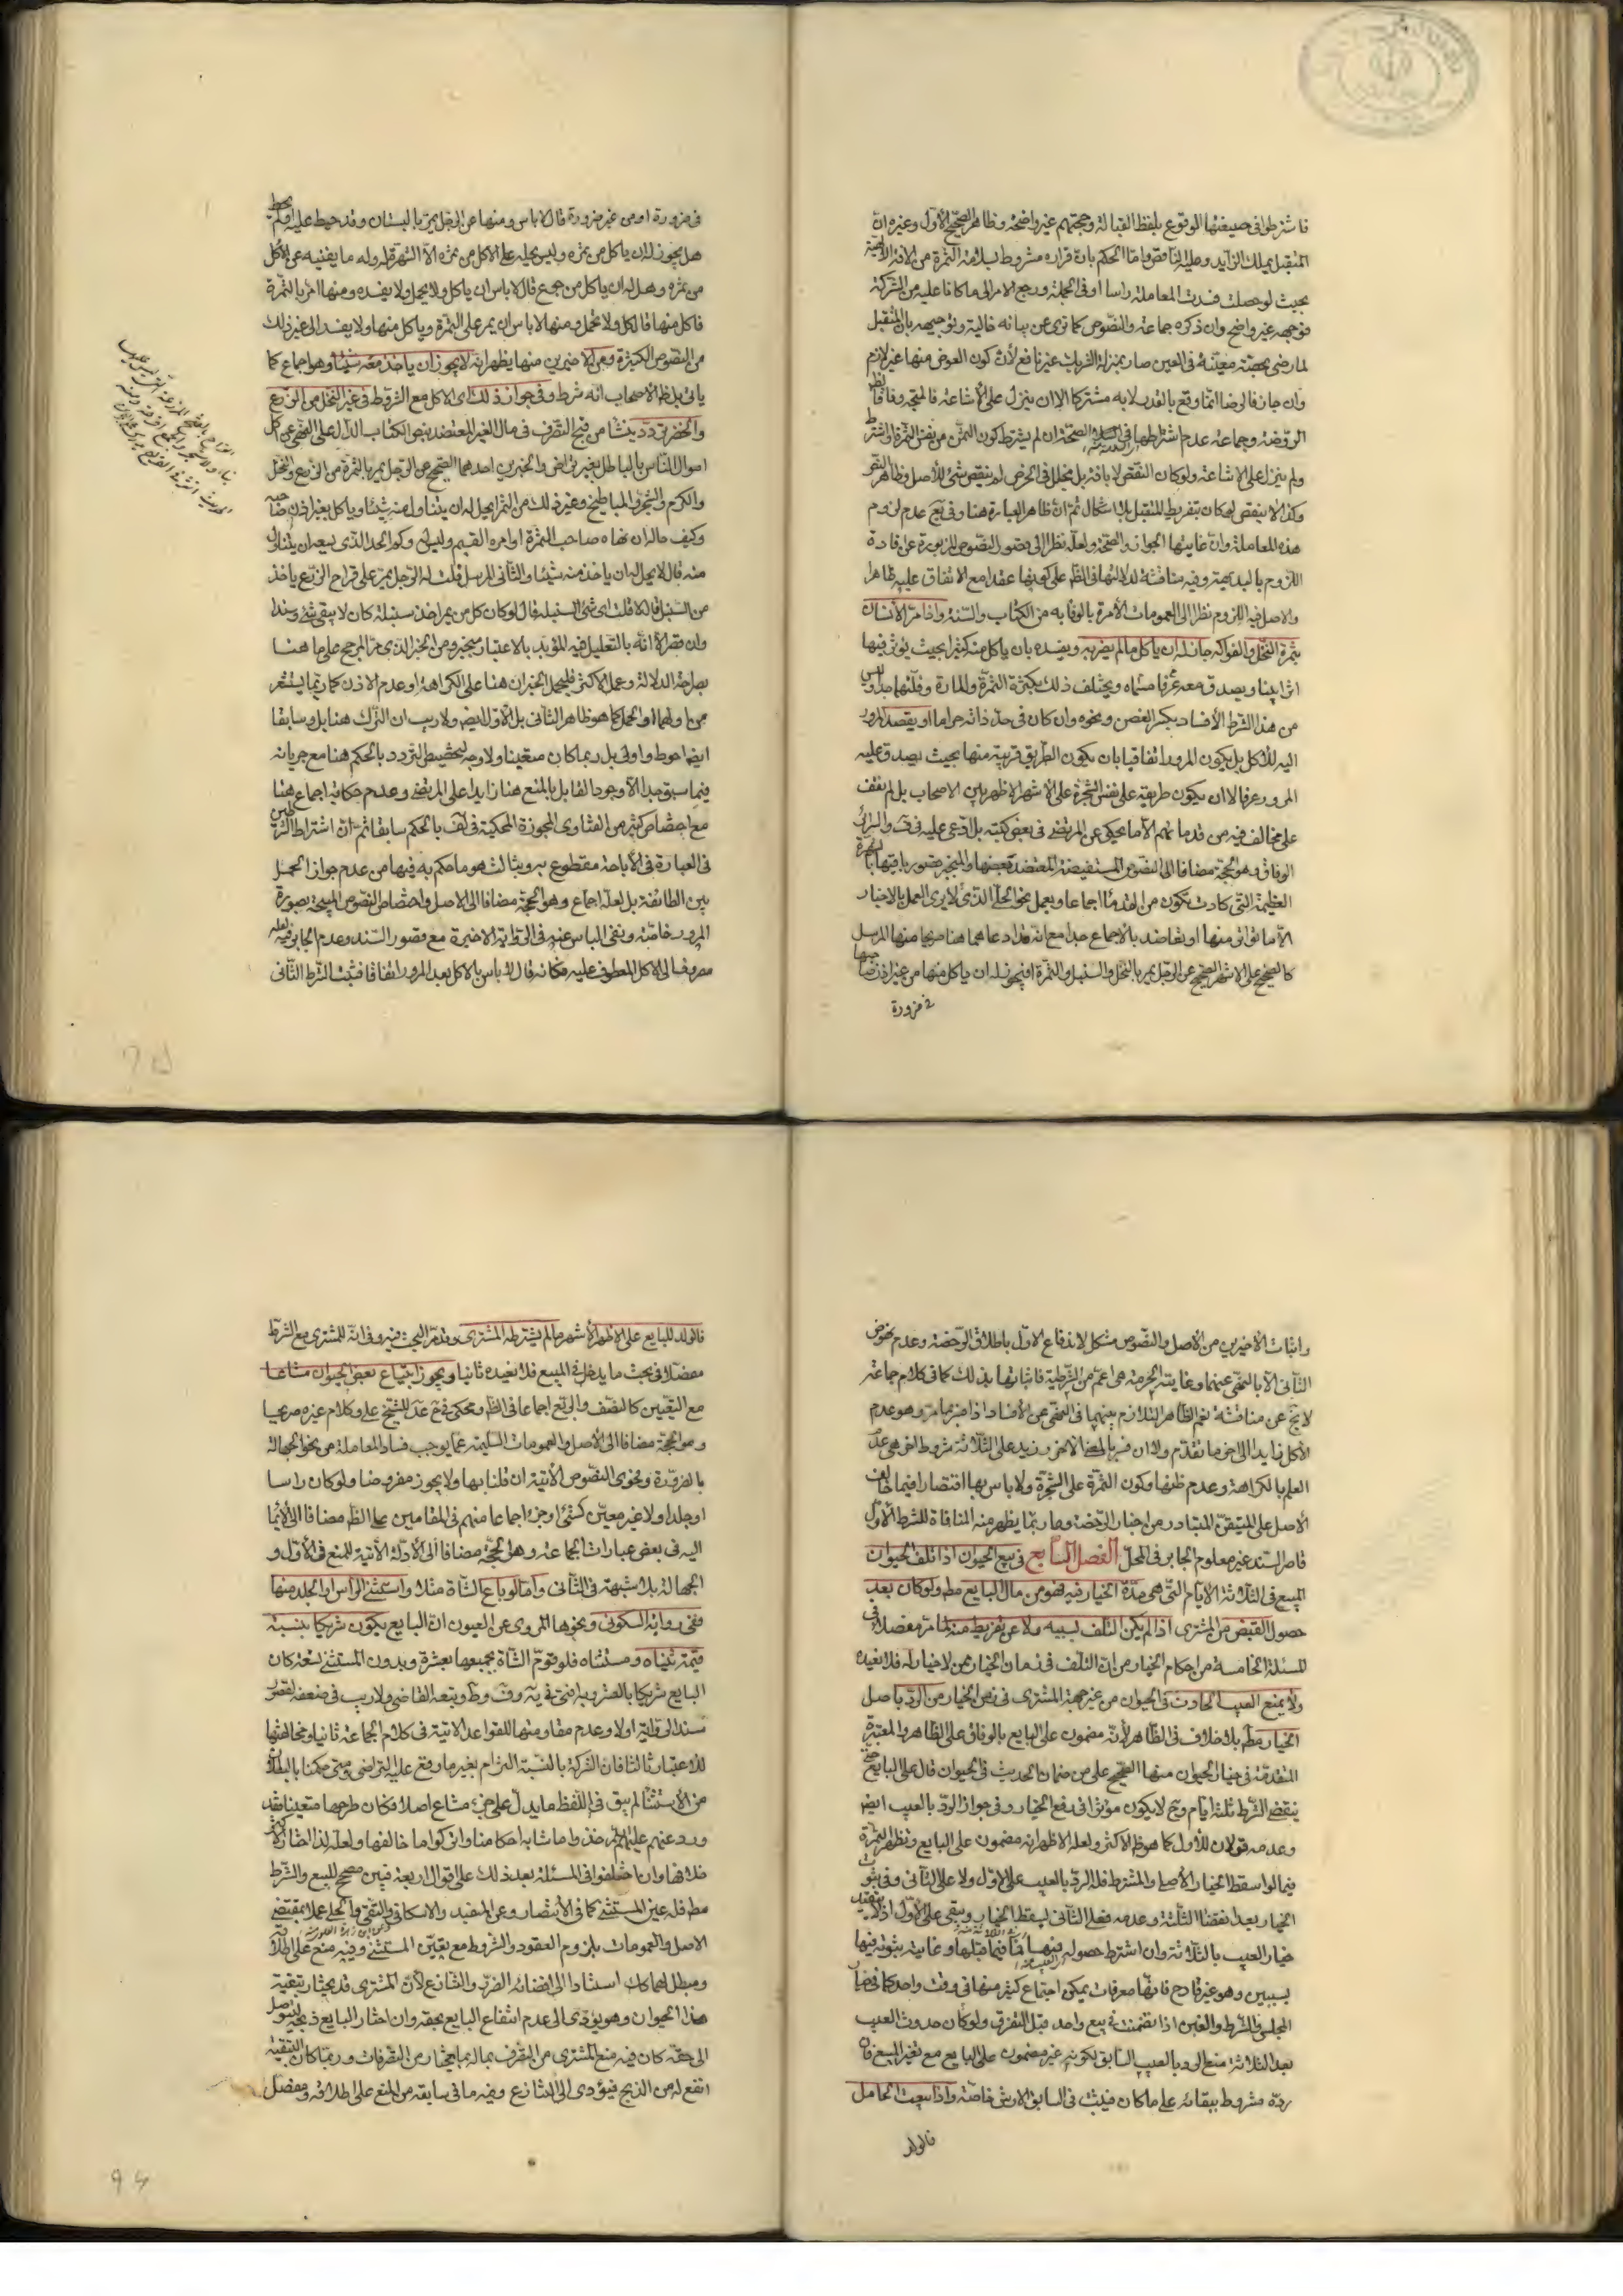 فاشترطوا في صيغتها الوقوع بلفظ القبالة وحجتهم غير واضحة وظاهر الصحيح الأول وغيره ان
المتقبل يملك الزايد وعليه الناقص واما الحكم بان قراره مشروط بسلامة الثمرة من الآفة الالهية
بحيث لو حصلت فسدت المعاملة راسا او في الجملة ورجع الامر الى ما كانا عليه من الشركة
فوجهه غير واضح وان ذكره جماعة والنصوص كما ترى عن بيانه خالية وتوجيهه بان المتقبل
لما رضي بحصته معينة في العين صار بمنزلة الشريك غير نافع لأن كون العوض منها غير لازم
وان جاز فالرضا انما وقع بالقدر لا به مشتركا الا ان ينزل على الأشاعة فالمتجه وفاقا
الروضة وجماعة عدم اشتراطها في الصحة ان لم يشترط كون الثمن من نفس الثمرة او اشترط
ولم ينزل على الاشاعة ولو كان النقص لا بافة بل بخلل في الخرص لم ينقص شئ للأصل وظاهر النص
وكذا لا ينقص لو كان بتفريط المتقبل بلا اشكال ثم ان ظاهر العبارة هنا وفي يع عدم لزوم
هذه المعاملة وان غايتها الجواز والصحة ولعله نظرا الى قصور النصوص المزبورة عن افادة
اللزوم بالبديهة وفيه مناقشة لدلالتها في الظ على كونها عقدا مع الاتفاق عليه ظاهرا
والاصل فيه اللزوم نظرا الى العمومات الأمرة بالوفا به من الكتاب والسنة واذا مر الأنسان
بثمرة النخل والفواكه جاز له ان ياكل ما لم يضر به ويفسده بان ياكل منه كثيرا بحيث يؤثر فيها
اثرا بينا ويصدق معه عرفا مسماه ويختلف ذلك بكثرة الثمرة والمارة وقلتهما جدا وليس
من هذا الشرط الأفساد بكسر الغصن ونحوه وان كان في حد ذاته حراما او يقصد المرور
اليه للأكل بل يكون المرور اتفاقيا بان يكون الطريق قريبة منها بحيث يصدق عليه
المرور عرفا لا ان يكون طريقه على نفس الشجرة على الأشهر الاظهر بين الاصحاب بل لم نقف
على مخالف فيه من قدمائهم الا ما يحكى عن المرتضى في بعض كتبه بل ادعى عليه في ف والسرائر
الوفاق وهو الحجة مضافا الى النصوص المستفيضة المعتضد بعضها والمنجبر قصور باقيها بالشهرة
العظيمة التي كادت تكون من القدماء اجماعا ويعمل بنحوه الحلي الذي لا يرى العمل بالاخبار
الا ما تواتر منها او تعاضد بالاجماع جدا مع انه قد ادعاهما هنا صريحا منها المرسل
كالصحيح على الاشهر الصحيح عن الرجل يمر بالنخل والسنبل والثمرة افيجوز له ان ياكل منها من غير اذن صاحبها
من ضرورة
في ضرورة او من غير ضرورة قال لا باس ومنها عن الرجل يمر بالبستان وقد حيط عليه او لم يحط
هل يجوز له ان ياكل من ثمره وليس يحمله على الاكل من ثمره الا الشهوة وله ما يغنيه عن الاكل
من ثمره وهل له ان ياكل من جوع قال لا باس ان ياكل ولا يحمل ولا يفسده ومنها امر بالثمرة
فاكل منها قال كل ولا تحمل ومنها لا باس ان يمر على الثمرة وياكل منها ولا يفسد الى غير ذلك
من النصوص الكثيرة وعن الاخيرين منها يظهر انه لا يجوز ان ياخذ معه شيئا وهو اجماع كما
ياتي بل ظ الأصحاب انه شرط وفي جواز ذلك اى الاكل مع الشروط في غير النخل من الزرع
والخضر تردد ينشا من قبح التصرف في مال الغير المعتضد بنص الكتاب الدال على النهي عن اكل
اموال الناس بالباطل بغير تراض والخبرين احدهما الصحيح عن الرجل يمر بالثمرة من الزرع والنخل
والكرم والشجر والمباطيخ وغير ذلك من الثمر ايحل له ان يتناول منه شيئا وياكل بغير اذن صاحبه
وكيف حاله ان نهاه صاحب الثمرة او امره القيم وليس له وكم الحد الذي يسعه ان يتناول
منه قال لا يحل له ان ياخذ منه شيئا والثاني المرسل قلت له الرجل يمر على قراح الزرع ياخذ
من السنبل قال لا قلت اى شئ السنبلة قال لو كان كل من يمر اخذ سنبلة كان لا يبقى شئ وسندا
وان قصر الا انه بالتعليل فيه المؤيد بالاعتبار منجبر ومن الخبر الذي مر المرجح على ما هنا
بصراحة الدلالة وعمل الاكثر فليحمل الخبران هنا على الكراهة او عدم الاذن كما ربما يشعر
من اولهما او الحمل كما هو ظاهر الثاني بل الأول ايضا ولا ريب ان الترك هنا بل وسابقا
ايضا احوط واولى بل ربما كان متعينا ولا وجه لتخصيص التردد بالحكم هنا مع جريانه
فيما سبق جدا الا وجود القابل بالمنع هنا زايدا على المرتضى وعدم حكاية اجماع هنا
مع اختصاص كثير من الفتاوى المجوزة المحكية في لف بالحكم سابقا ثم ان اشتراط الشرطين
في العبارة في الأباحة مقطوع به وبثالث هو ما حكم به فيها من عدم جواز الحمل
بين الطائفة بل لعله اجماع وهو الحجة مضافا الى الاصل واختصاص النصوص المبيحة بصورة
المرور خاصة ونفي الباس عنه في الرواية الاخيرة مع قصور السند وعدم الجابر فيه لعله
مصروف الى الاكل المعطوف عليه فكانه قال لا باس بالاكل بعد المرور اتفاقا فثبت الشرط الثاني
واثبات الأخيرين من الأصل والنصوص مشكل لاندفاع الاول باطلاق الرخصة وعدم نهوض
الثاني الا بالنهي عنهما وغايته الحرمة هي اعم من الشرطية فاثباتها بذلك كما في كلام جماعة
لا يخ عن مناقشة نعم الظاهر التلازم بينهما في النهي عن الأفساد اذا فسر بما مر وهو عدم
الأكل زايدا الى اخر ما تقدم ولا ان فسر بالمعنى الاخر وزيد على الثلاثة شروط اخر هي عدم
العلم بالكراهة وعدم ظنها وكون الثمرة على الشجرة ولا باس بها اقتصارا فيما خالف
الأصل على المتيقن المتبادر من اخبار الرخصة وما ربما يظهر منه المنافاة للشرط الأول
قاصر السند غير معلوم الجابر في المحل الفصل السابع في بيع الحيوان اذا تلف الحيوان
المبيع في الثلاثة الايام التي هي مدة الخيار فيه فهو من مال البايع مط ولو كان بعد
حصول القبض من المشتري اذا لم يكن التلف بسببه ولا عن تفريط منه لما مر مفصلا في
المسئلة الخامسة من احكام الخيار من ان التلف في زمان الخيار ممن لا خيار له فلا نعيده
ولا يمنع العيب الحادث في الحيوان من غير جهة المشتري في زمن الخيار من الرد باصل
الخيار مط بلا خلاف في الظاهر لأنه مضمون على البايع بالوفاق على الظاهر والمعتبرة
المتقدمة في خيار الحيوان منها الصحيح على من ضمان الحدث في الحيوان قال على البايع حتى
ينقضي الشرط ثلثة ايام وح لا يكون مؤثرا في رفع الخيار وفي جواز الرد بالعيب ايضا
وعدمه قولان للأول كما هو ظ الاكثر ولعله الاظهر انه مضمون على البايع وتظهر الثمرة
فيما لو اسقط الخيار الأصلي والمشترط فله الرد بالعيب على الأول ولا على الثاني وفي ثبوت
الخيار بعد انقضاء الثلثة وعدمه فعلى الثاني يسقط الخيار ويبقى على الأول اذ لا يتقيد
خيار العيب بالثلاثة وان اشترط حصوله فيها او فيما قبلها وغايته ثبوته فيها
بسببين وهو غير قادح فانها معرفات يمكن اجتماع كثير منها في وقت واحد كما في خيار
المجلس والشرط والغبن اذا تضمنت في بيع واحد قبل التفرق ولو كان حدوث العيب
بعد الثلاثة منع الرد بالعيب السابق لكونه غير مضمون على البايع مع تغير المبيع فان
رده مشروط ببقائه على ما كان فيثبت في السابق الارش خاصة واذا بيعت الحامل
فالولد
فالولد للبايع على الاظهر الأشهر ما لم يشترطه المشتري وقد مر البحث فيه وفي انه للمشتري مع الشرط
مفصلا في بحث ما يدخل في المبيع فلا نعيده ثانيا ويجوز ابتياع بعض الحيوان مشاعا
مع التعيين كالنصف والربع اجماعا في الظ ومحكي في شرح عد للشيخ علي وكلام غيره صريحا
وهو الحجة مضافا الى الأصل والعمومات السليمة عما يوجب فساد المعاملة من نحو الجهالة
بالضرورة وفحوى النصوص الأتية ان قلنا بها ولا يجوز مفروضا ولو كان راسا
او جلدا ولا غير معين كشئ او جزء اجماعا منهم في المقامين على الظ مضافا الى الأيماء
اليه في بعض عبارات الجماعة وهي الحجة مضافا الى الأدلة الأتية للمنع في الأول و
الجهالة بلا شبهة في الثاني واما لو باع الشاة مثلا واستثنى الرأس او الجلد منها
ففي رواية السكوني ونحوها المروي عن العيون ان البايع يكون شريكا بنسبة
قيمة ثنياه ومستثناه فلو قوم الشاة بجميعها بعشرة وبدون المستثنى بتسعة كان
البايع شريكا بالعشر وبه افتى في ية وف وط وتبعه القاضي ولا ريب في ضعفه لقصور
سند الرواية اولا وعدم مقاومتها للقواعد الاتية في كلام الجماعة ثانيا ومخالفتها
للأعتبار ثالثا فان الشركة بالنسبة التزام بغير ما وقع عليه التراضي ومتى حكمنا بالبطلان
من الأستثناء لم يبق في اللفظ ما يدل على جزء مشاع اصلا فكان طرحها متعينا فقد
ورد عنهم عليهم السلام خذوا ما شابه احكامنا واتركوا ما خالفها ولعله لذا اختار الاكثر
خلافها وان اختلفوا في المسئلة بعد ذلك على اقوال اربعة فبين مصحح للبيع والشرط
مط فله عين المستثنى كما في الأنتصار وعن المفيد والاسكافي والتقي والحلي عملا بمقتضى
الأصل والعمومات بلزوم العقود والشروط مع تعين المستثنى وفيه منع على اطلاقه
ومبطل لهما كك استنادا الى افضائه الضرر والتنازع لأن المشتري قد يختار تبقية
هذا الحيوان وهو يؤدى الى عدم انتفاع البايع بحقه وان اختار البايع ذبحه ليتوصل
الى حقه كان فيه منع المشتري من التصرف بماله بما يختار من التصرفات وربما كان التبقية
انفع له من الذبح فيؤدى الى التنازع وفيه ما في سابقه من المنع على اطلاقه ومفصل